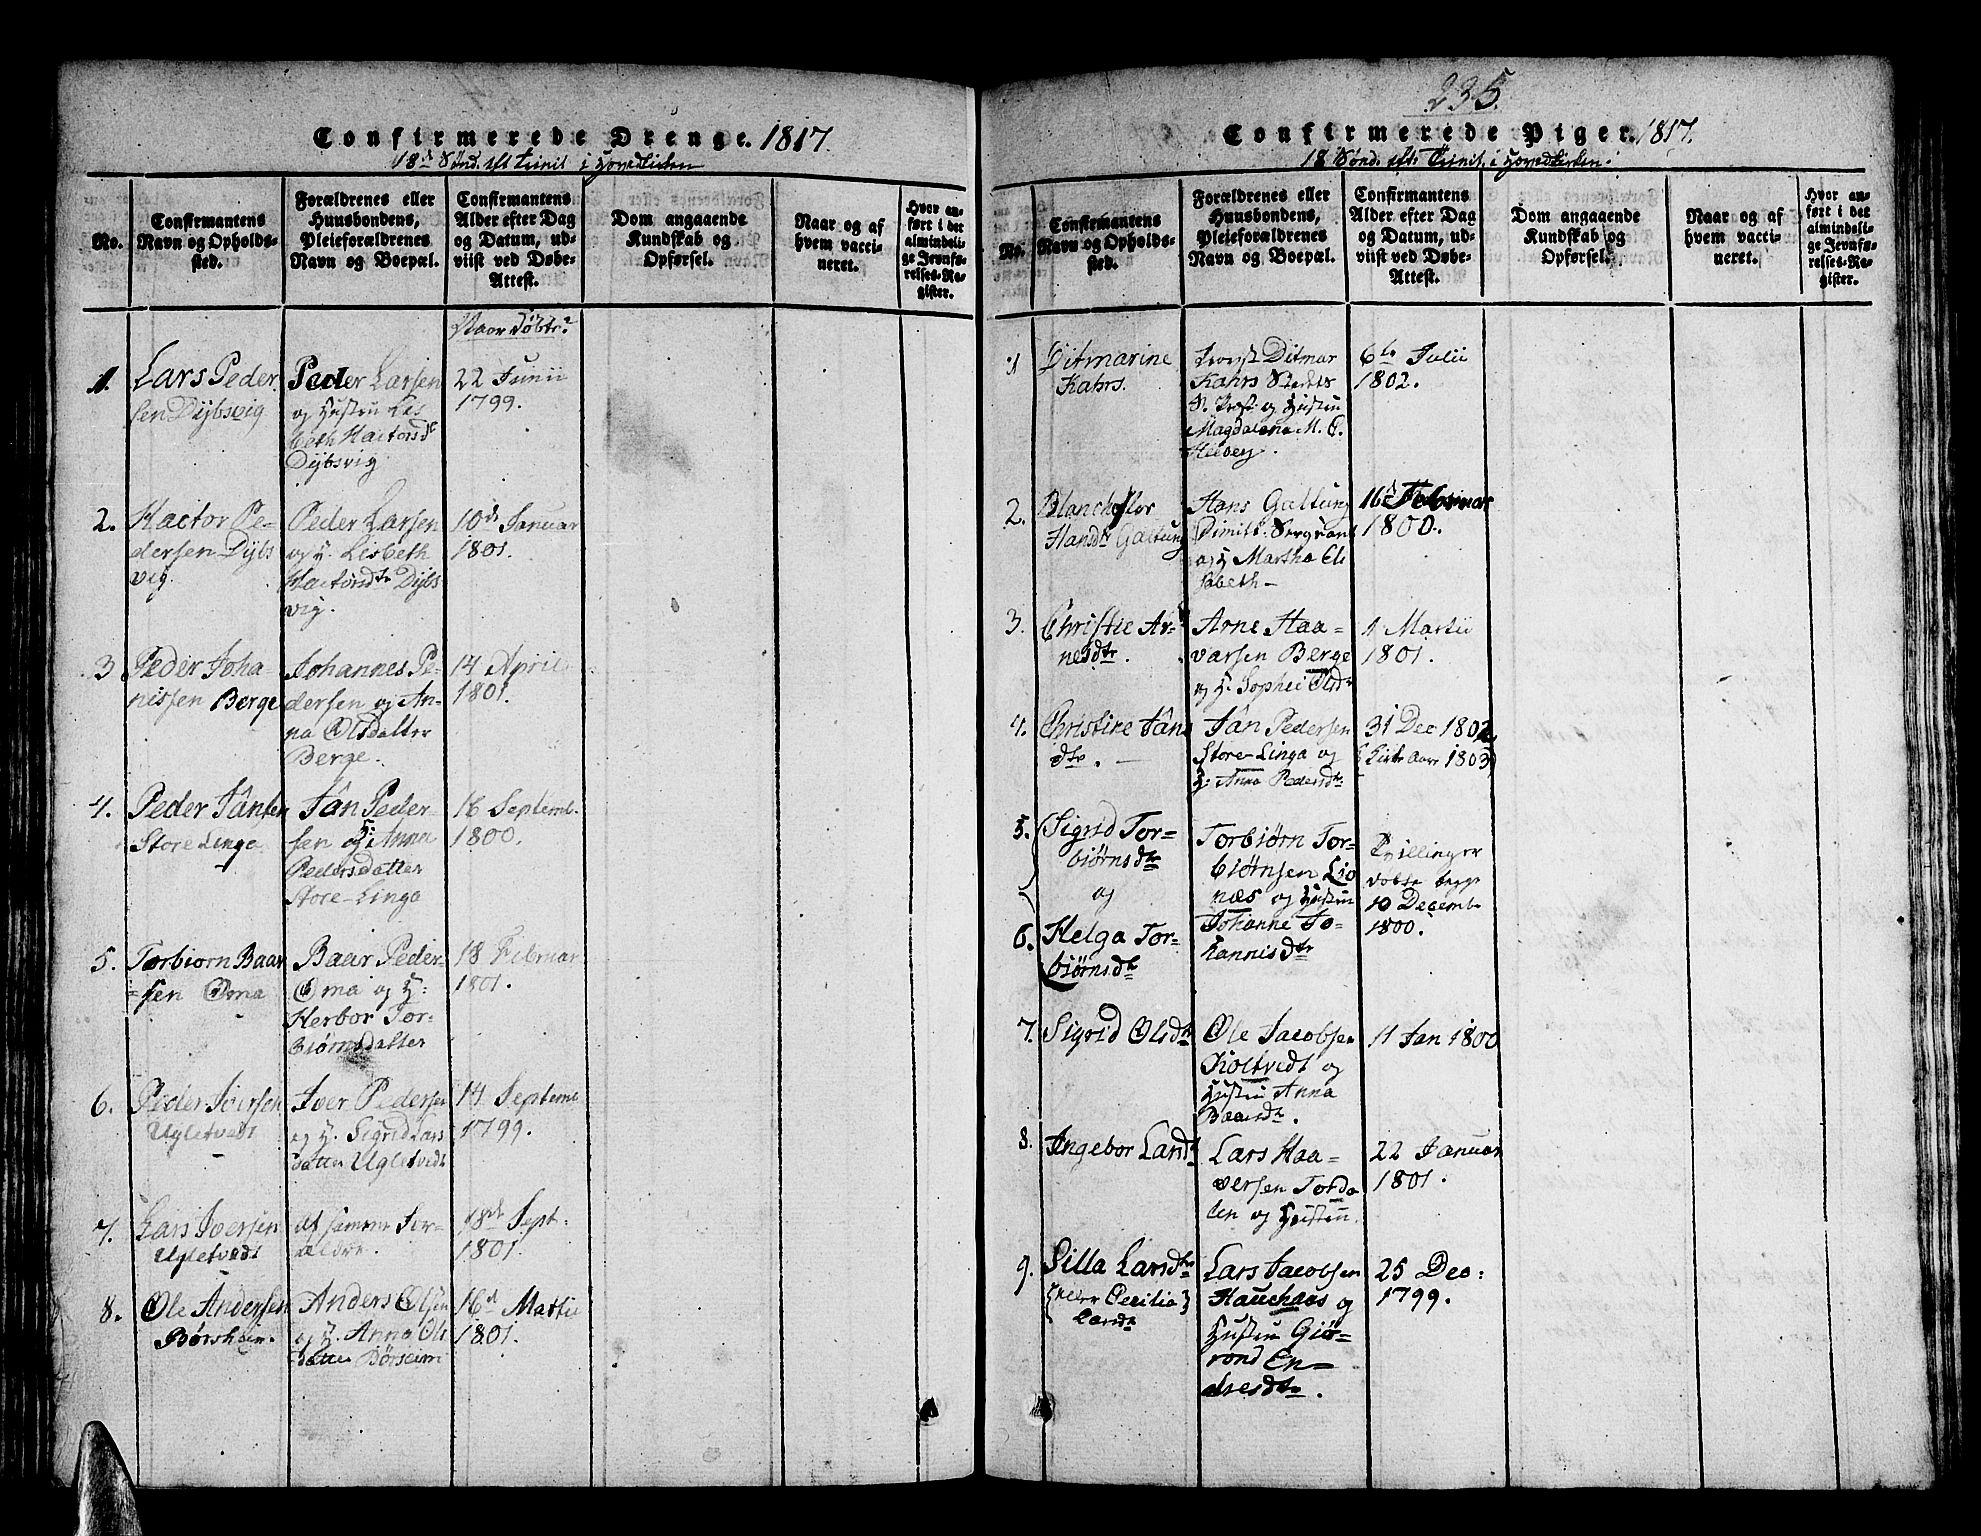 Confirmerede Drenge. 1817.
18de Sønd. eft. Trinit. i Hovedkirken
No.
Confirmantens
Navn og Opholds-
sted.
Forældrenes eller
Huusbondens,
Pleieforældrenes
Navn og Boepæl.
Confirmantens
Alder efter Dag
og Datum, ud-
viist ved Døbe-
Attest.
Dom angaaende
Kundskab og
Opførsel.
Naar og af
hvem vacci-
neret.
Hvor an-
ført i det
almindeli-
ge Jevnfø-
relses-Re-
gister.
Naar døbte?
1.
Lars Peder
sen Dybsvig
Peder Larsen
og Hustru Lis
beth Hactorsdr
Dybsvig
22 Junii
1799.
2.
Hactor Pe-
dersen Dybs
vig.
Peder Larsen
og H. Lisbeth
Hactorsdtr Dybs
vig.
10de Januar
1801.
3
Peder Joha-
nissen Berge
Johannes Pe-
dersen og An-
na Olsdatter
Berge.
14 April
1801.
4.
Peder Jânsen
Store Linga
Jân Peder-
sen og H: Anna
Pedersdatter
Store-Linga
16 Septemb.
1800.
5.
Torbiorn Baar
=sen Oma
Baar Peder-
Oma og H:
Herbor Tor-
biørnsdatter
18 Februar
1801.
6.
Peder Iversen
Ugletvedt
Iver Pedersen
og H. Sigrid Lars
datter Ugletvedt
14 Septemb
1799.
7.
Lars Iversen
Ugletvedt
Af samme For-
ældre.
18de Sept.
1801.
8.
Ole Andersen
Børsheim.
Anders Olsen
og H. Anna Ols
datter Børseim
16d Martii
1801.
235.
Confirmerede Piger. 1817.
18 Sønd. eft. Trinit. i Hovedkirken.
No.
Confirmantens
Navn og Opholds-
sted.
Forældrenes eller
Huusbondens,
Pleieforældrenes
Navn og Boepæl.
Confirmantens
Alder efter Dag
og Datum, ud-
viist ved Døbe-
Attest.
Dom angaaende
Kundskab og
Opførsel.
Naar og af
hvem vacci-
neret.
Hvor an-
ført i det
almindeli-
ge Jevnfø-
relses-Re-
gister.
1
Ditmarine
Kahrs.
Provst Ditmar
Kahrs Stedets
S. Præst og Hustru
Magdalena M. C.
Heiberg.
6te Julii
1802.
2.
Blancheflor
Hansdtr Galtung
Hans Galtung
Dimitt: Sergeant
og H Martha Eli
sabeth-
16d Februar
1800.
3.
Christie Ar-
nesdtr.
Arne Haa-
varsen Berge
og H. Sophie Olsdr
1 Martii
1801.
4.
Christine Jâns
dtr.
Jân Pedersen
Store-Linga og
H: Anna Pedersdtr
31 Dec 1802
(Kirke Aar 1803)
5.
Sigrid Tor-
biørnsdtr
og
6.
Helga Tor-
biørnsdtr
Torbiørn Tor-
biørnsen Lio
næs og Hustru
Johanne Jo-
hannisdtr
Tvillinger
døbte begge
10 Decemb.
1800.
7.
Sigrid Olsdtr
Ole Jacobsen
Kioltvedt og
Hustru Anna
Baarsdtr.
11 Jan 1800
8.
Ingebor Larsdtr
Lars Haa-
versen Torda
len og Hustru.
22 Januar
1801.
9.
Silla Larsdtr
{eller Cecilia}
Larsdtr
Lars Jacobsen
Hauehaas og
Hustru Giø-
rond En-
dresdtr.
25 Dec:
1799.